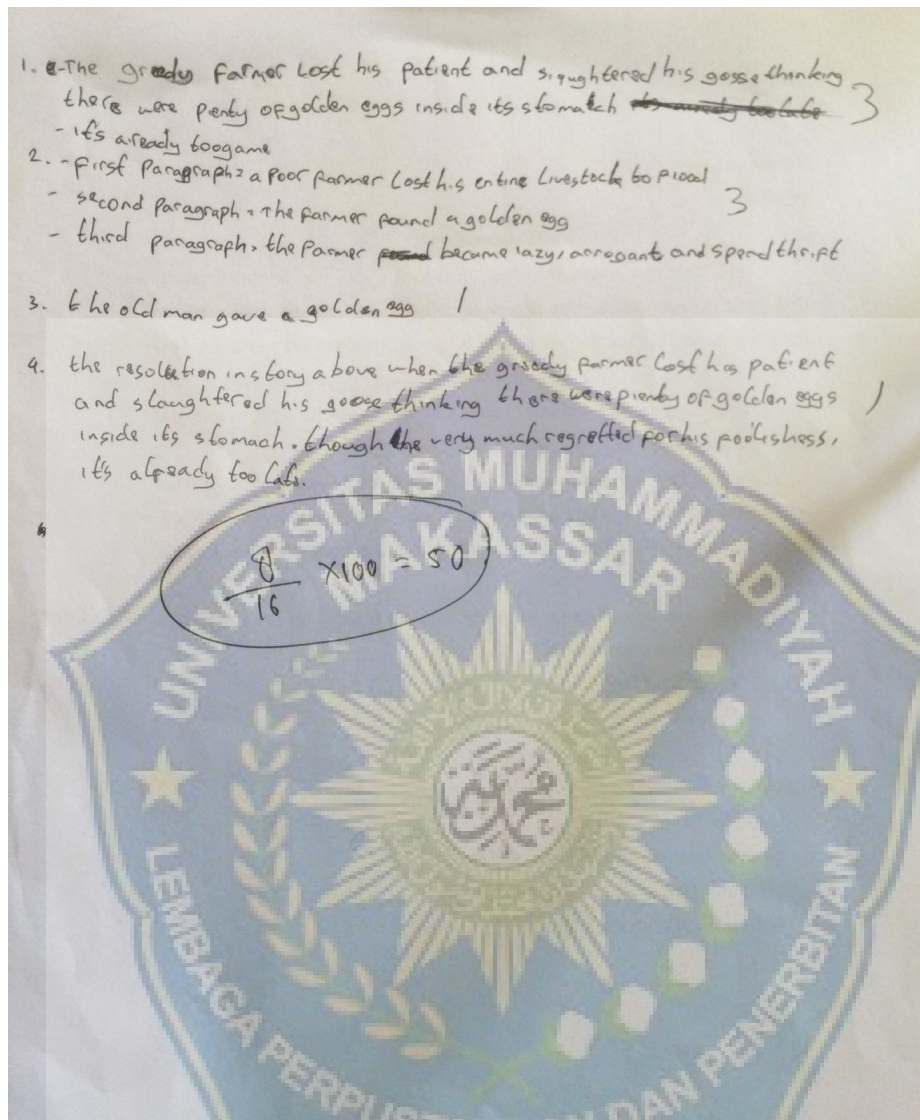 1. -The greedy farmer Lost his patient and siqughtered his gosse thonking 3
there were plenty of golden eggs inside its stomatch its already too late
- it's already toogame
2. - First Paragraph = a Poor farmer Lost his entine Livestock to flood
- second Paragraph = The farmer found a golden egg 3
- third paragraph, the Parmer became lazy, arrogant and Spendthrift
3. the old man gave a golden egg 1
4. the resolution in story above when the greedy farmer Lost his patient
and slaughtered his goose thinking there were plenty of golden eggs 1
inside its stomach. though the very much regretted for his foolishess,
it's already too late.
8
16 ×100 = 50
UNIVERSITAS MUHAMMADIYAH
MAKASSAR
LEMBAGA DAN PENERBITAN